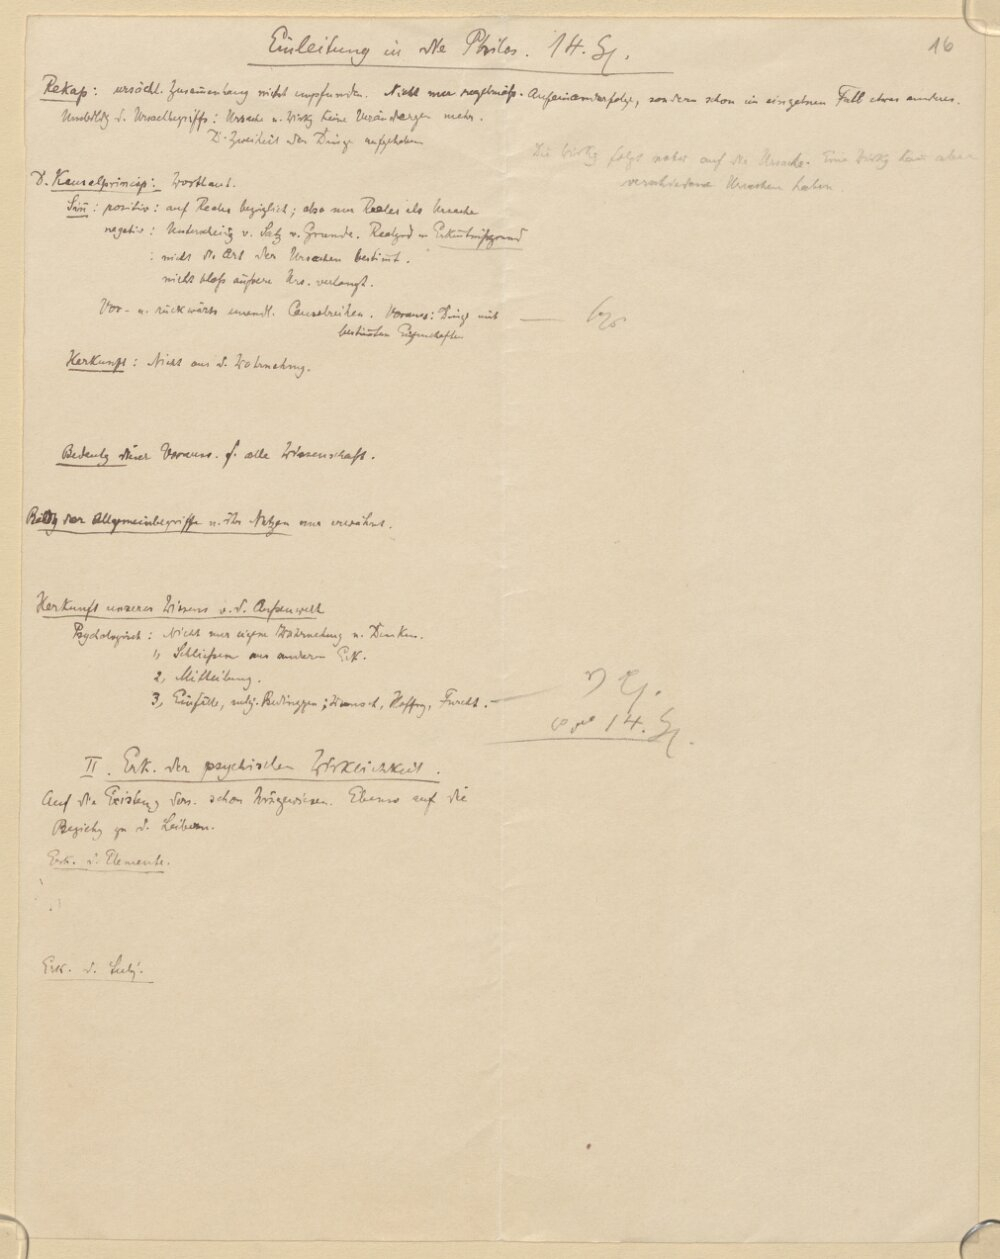 Einleitung in die Philos. 14. St.
16
Rekap: ursächl. Zusammenhang nicht empfunden. Nicht nur regelmäß. Aufeinanderfolge, sondern schon im einzelnen Fall etwas anderes.
Umbildg d. Ursachbegriffs: Ursache u. Wirkg keine Veränderungen mehr.
D. Zweiheit der Dinge aufgehoben
Die Wirkg folgt näher auf die Ursache. Eine Wirkg kann aber
verschiedene Ursachen haben.
D. Kausalprincip: Wortlaut.
Sinn: positiv: auf Reales bezüglich; also nur Reales als Ursache
negativ: Unterscheidg v. Satz v. Grunde. Realgrd u. Erkenntnißgrund
: nicht die Art der Ursachen bestimmt.
nicht bloß äußere Urs. verlangt.
Vor- u. rückwärts unendl. Causalreihen. Voraus: Dinge mit
bestimmten Eigenschaften
Herkunft: Nicht aus d. Wahrnehmg.
Bedeutg dieser Vorauss. f. alle Wissenschaft.
Bildg der Allgemeinbegriffe u. ihr Nutzen nur erwähnt.
Herkunft unseres Wissens v. d. Außenwelt
Psychologisch: Nicht nur eigene Wahrnehmung u. Denken.
1, Schließen aus anderem Erk.
2, Mitteilung.
3, Einfälle, subj. Bedinggen; Wunsch, Hoffng, Furcht.
14. St.
II. Erk. der psychischen Wirklichkeit.
Auf die Existenz ders. schon hingewiesen. Ebenso auf die
Beziehg zu d. Leibern.
Erk. d. Elemente.
Erk. d. Subj.